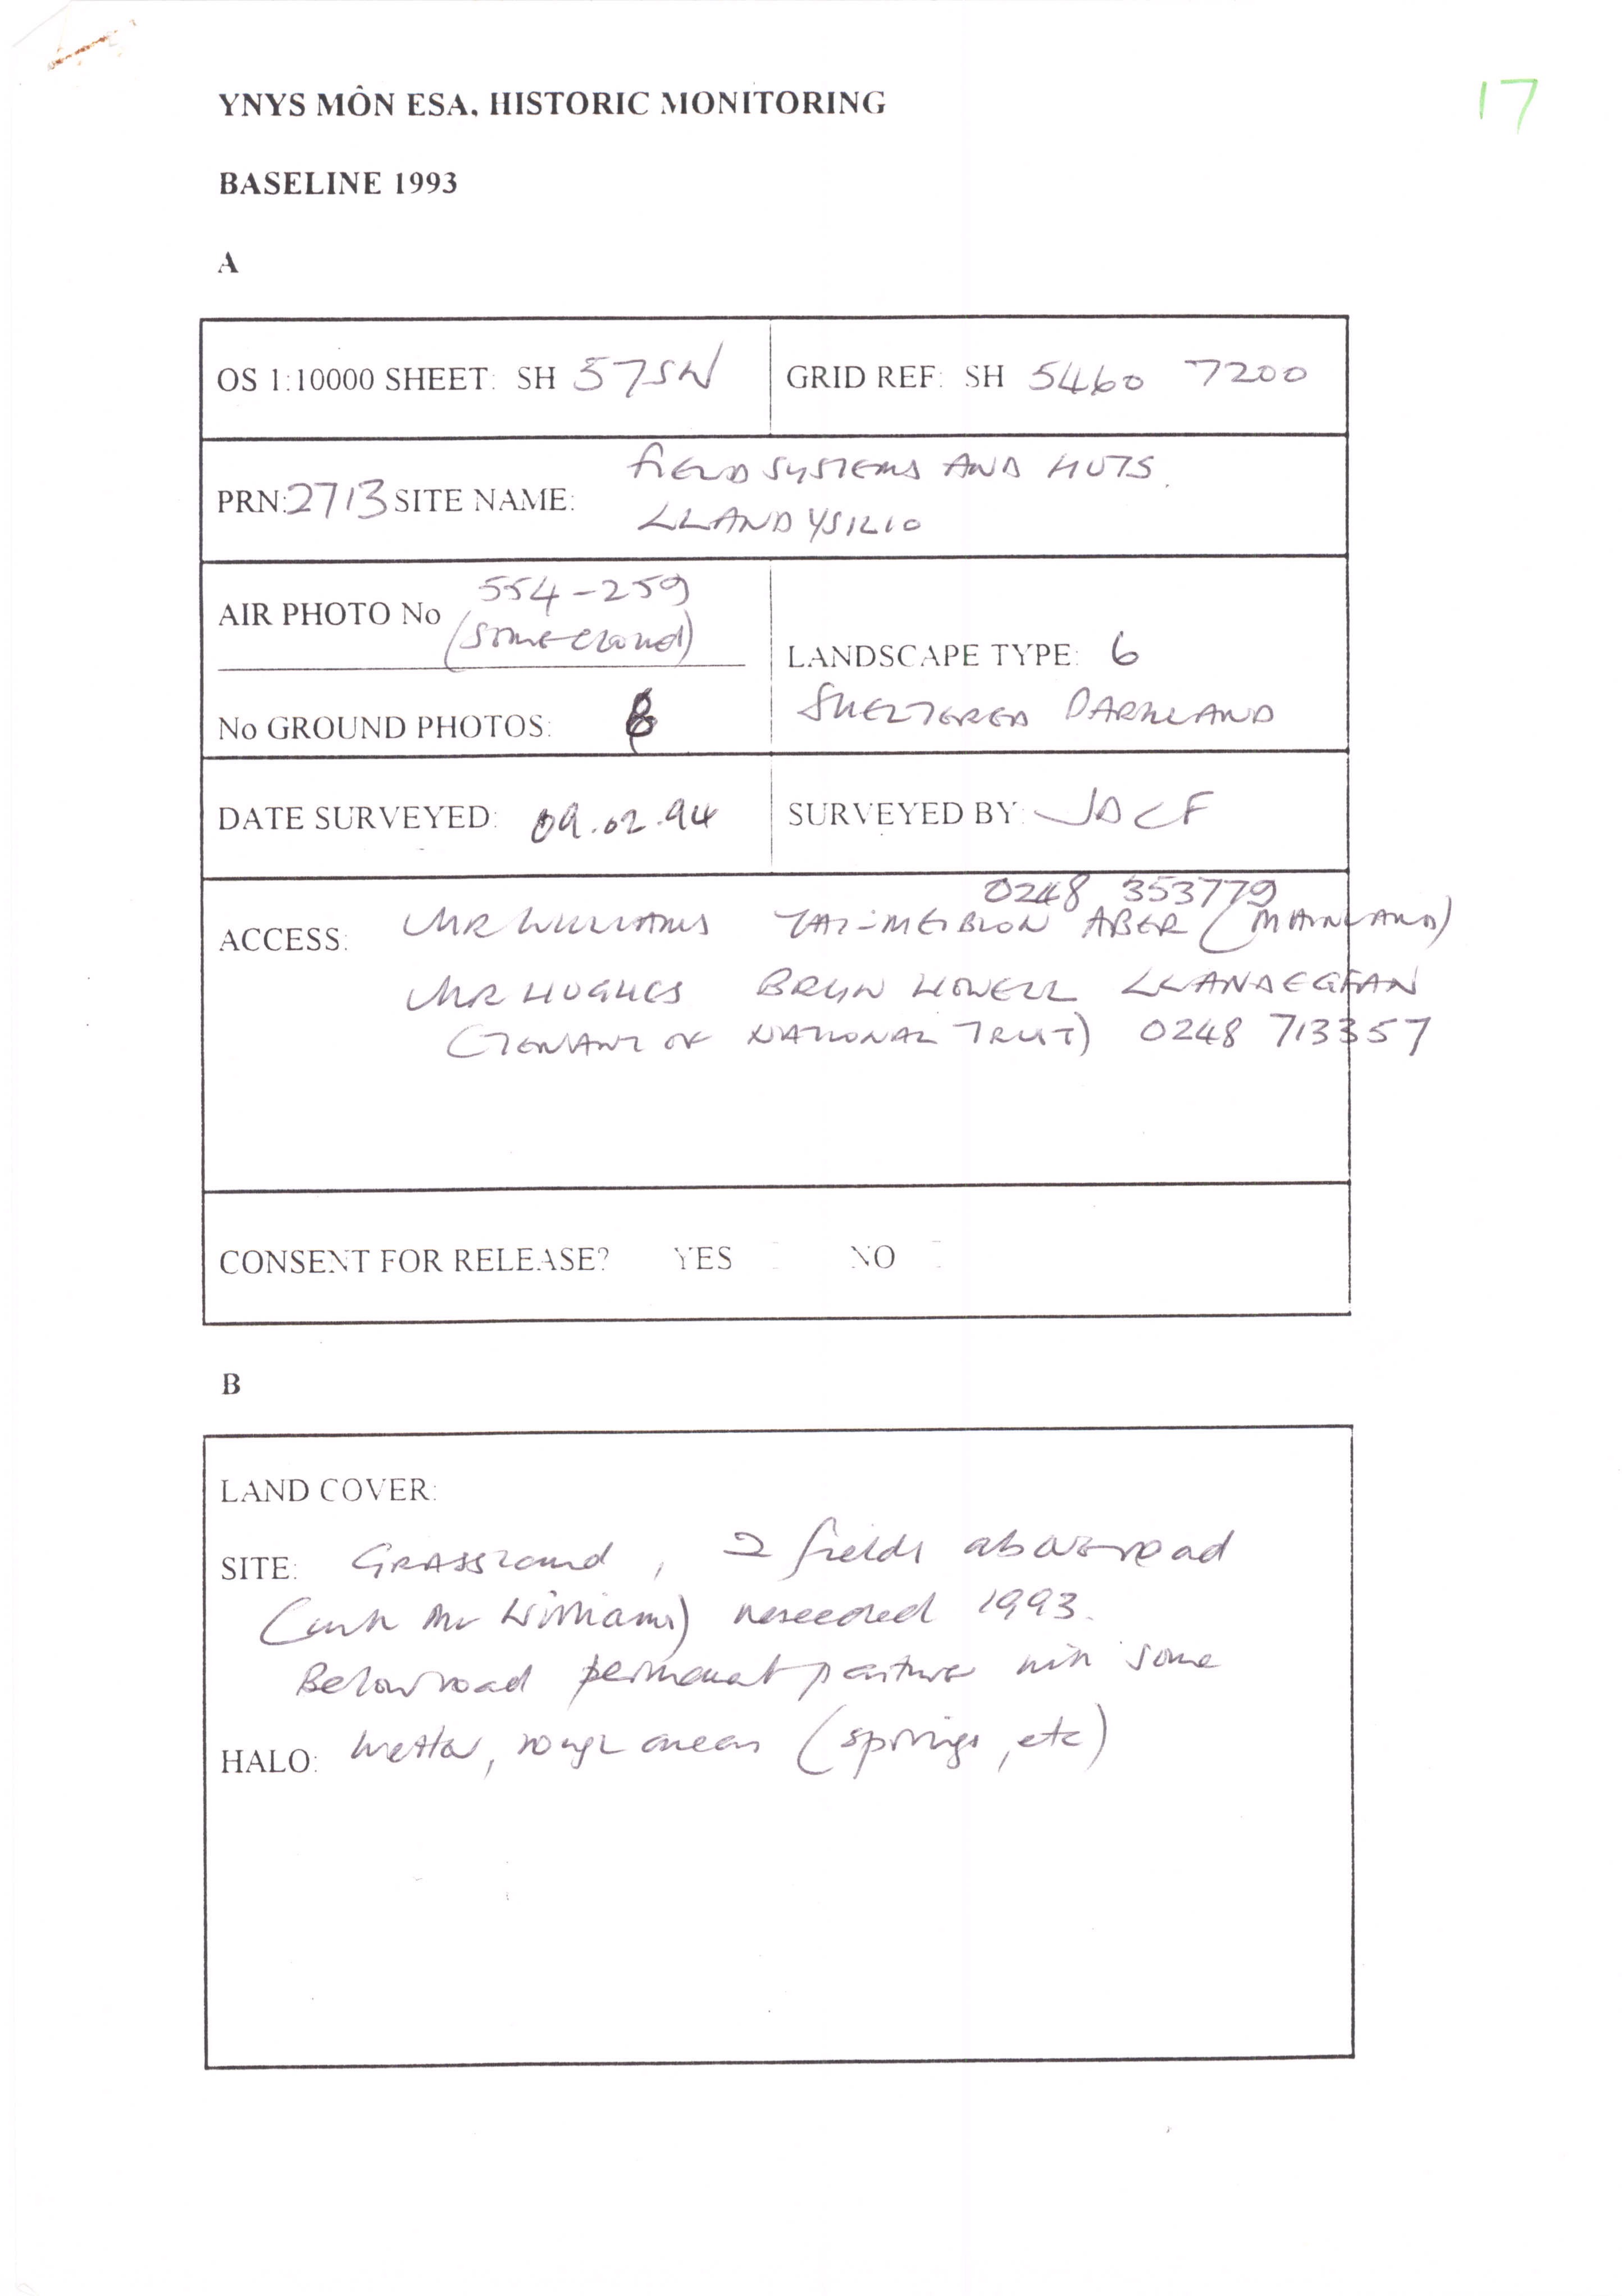 17
YNYS MÔN ESA, HISTORIC MONITORING
BASELINE 1993
A
OS 1:10000 SHEET: SH 57SW
GRID REF: SH 5460 7200
PRN: 2713 SITE NAME: FIELD SYSTEMS AND HUTS.
LLANDYSILIO
AIR PHOTO No 554-259
(some cloud)
No GROUND PHOTOS:
LANDSCAPE TYPE: 6
SHELTERED PARKLAND
DATE SURVEYED: 09.02.94
SURVEYED BY: JDCF
0248 353779
ACCESS: MR WILLIAMS TAI-MEIBION ABER (MAINLAND)
MR HUGHES BRYN HOWELL LLANDEGFAN
(TENANT OF NATIONAL TRUST) 0248 713357
CONSENT FOR RELEASE? YES NO
B
LAND COVER:
SITE: GRASSland, 2 fields above road
(with Mr Williams) reseeded 1993.
Below road permanent pasture with some
HALO: wetter, rough areas (springs, etc)